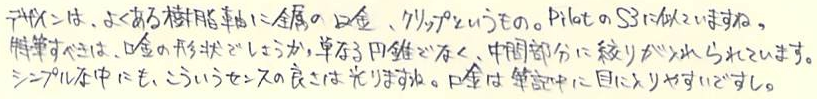 デザインは、よくある樹脂軸に金属の口金、クリップというもの。PilotのS3に似ていますね。
特筆すべきは、口金の形状でしょうか。単なる円錐でなく、中間部分に絞りが入れられています。
シンプルな中にも、こういうセンスの良さは光りますね。口金は筆記中に目に入りやすいですし。